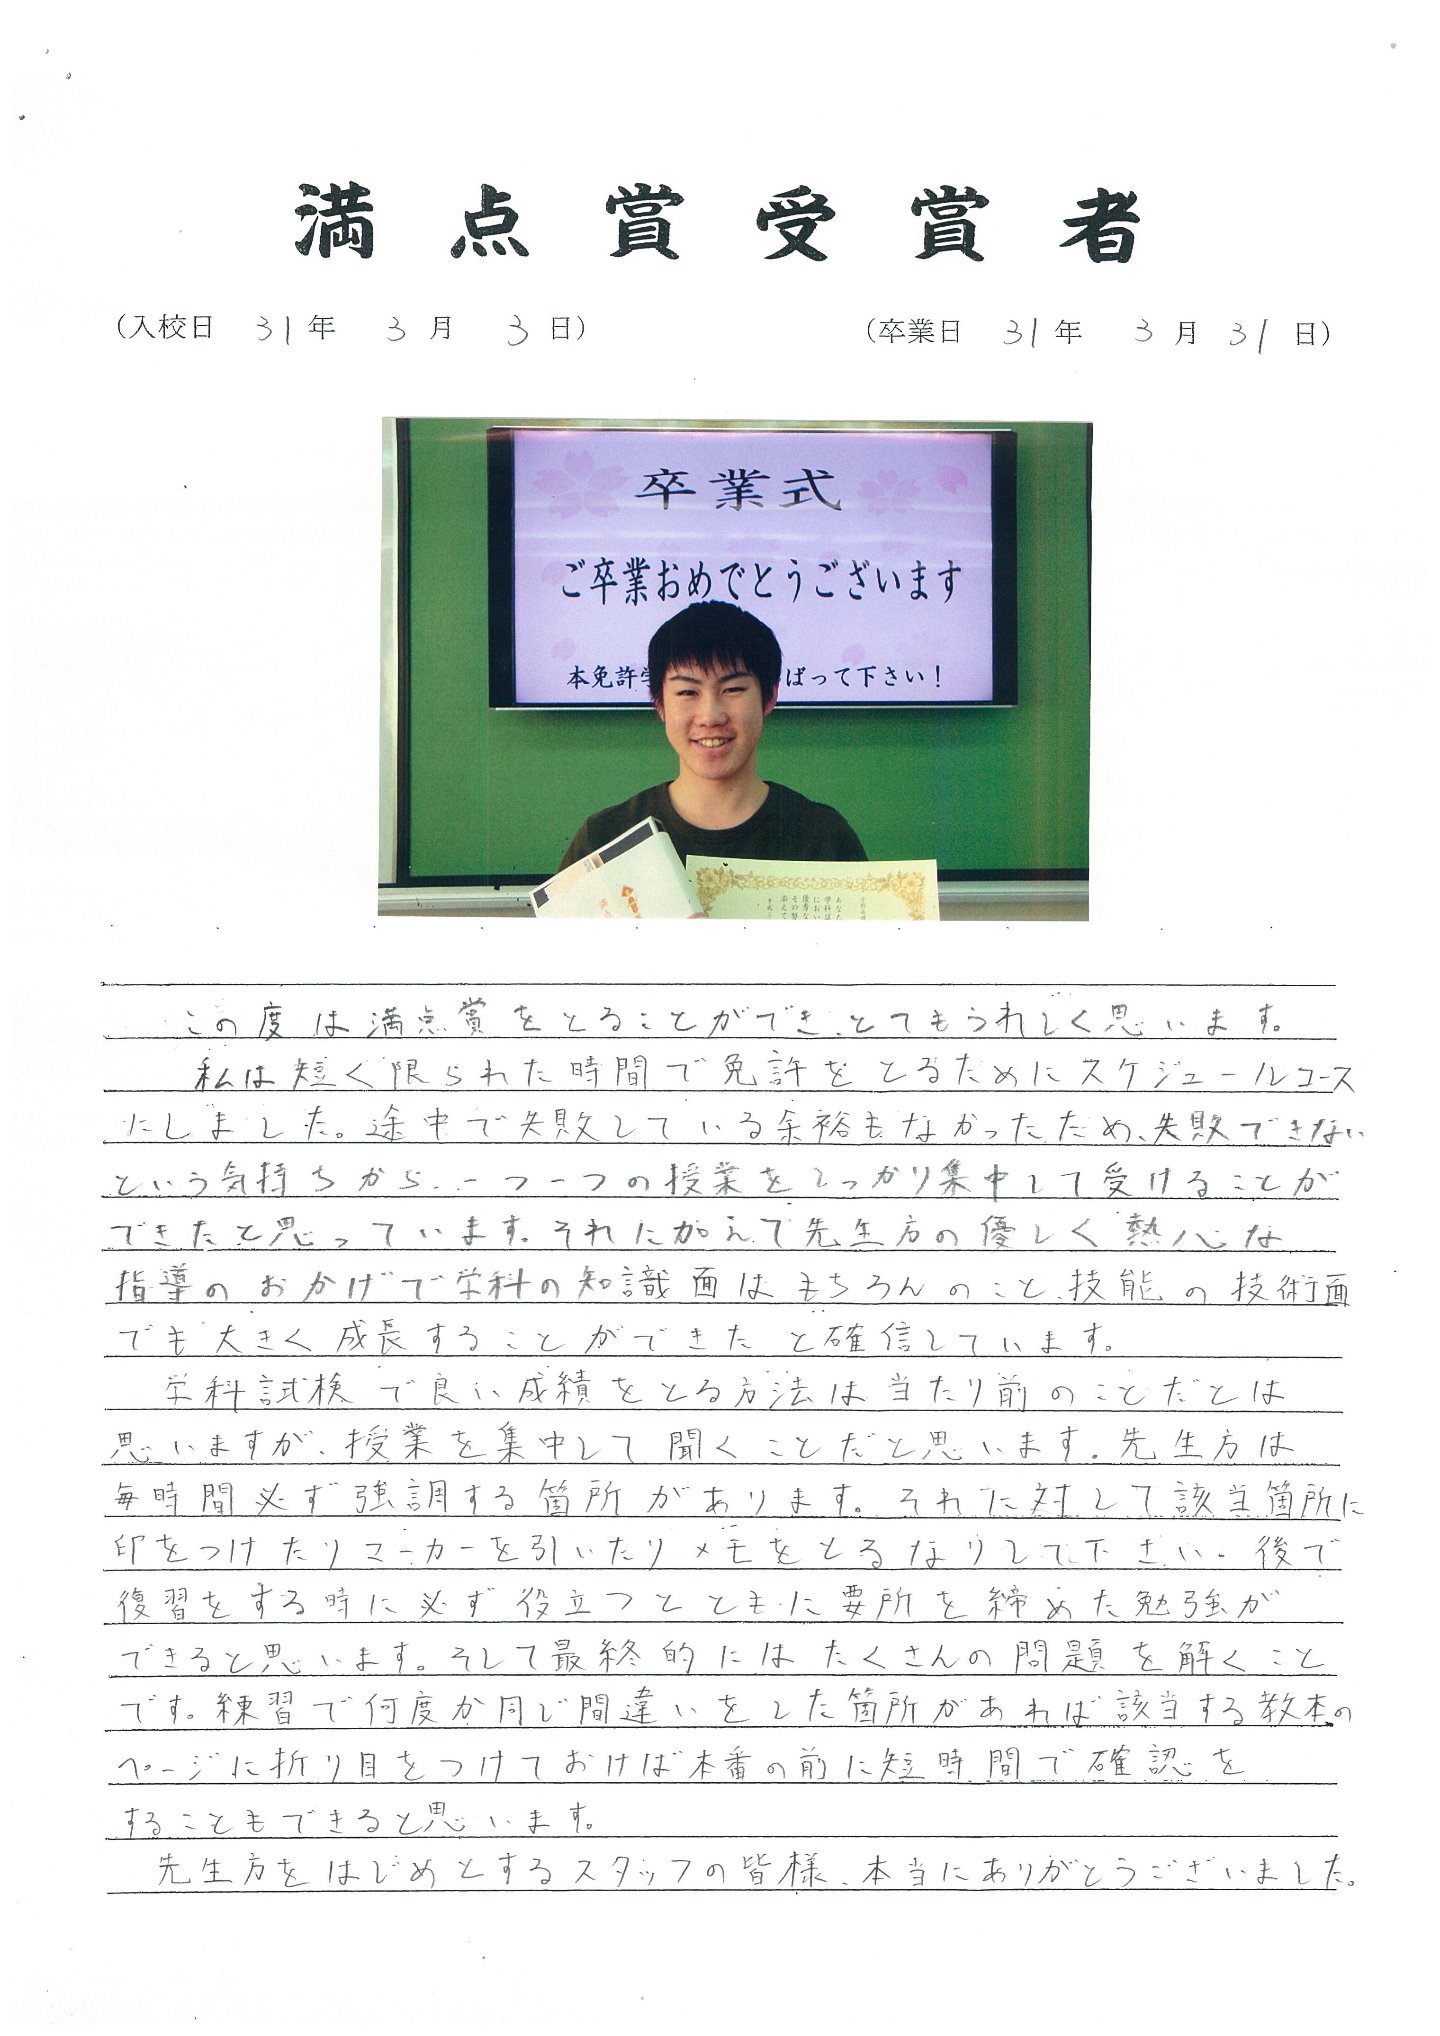 満点賞受賞者
（入校日 31年 3月 3日）　（卒業日 31年 3月 31日）
卒業式
ご卒業おめでとうございます
本免許学 ばって下さい！
この度は満点賞をとることができ、とてもうれしく思います。
私は短く限られた時間で免許をとるためにスケジュールコース
にしました。途中で失敗している余裕もなかったため、失敗できない
という気持ちから、一つ一つの授業をしっかり集中して受けることが
できたと思っています。それに加えて先生方の優しく熱心な
指導のおかげで学科の知識面はもちろんのこと、技能の技術面
でも大きく成長することができたと確信しています。
学科試験で良い成績をとる方法は当たり前のことだとは
思いますが、授業を集中して聞くことだと思います。先生方は
毎時間必ず強調する箇所があります。それに対して該当箇所に
印をつけたりマーカーを引いたりメモをとるなりして下さい。後で
復習をする時に必ず役立つとともに要所を締めた勉強が
できると思います。そして最終的にはたくさんの問題を解くこと
です。練習で何度か同じ間違いをした箇所があれば該当する教本の
ページに折り目をつけておけば本番の前に短時間で確認を
することもできると思います。
先生方をはじめとするスタッフの皆様、本当にありがとうございました。